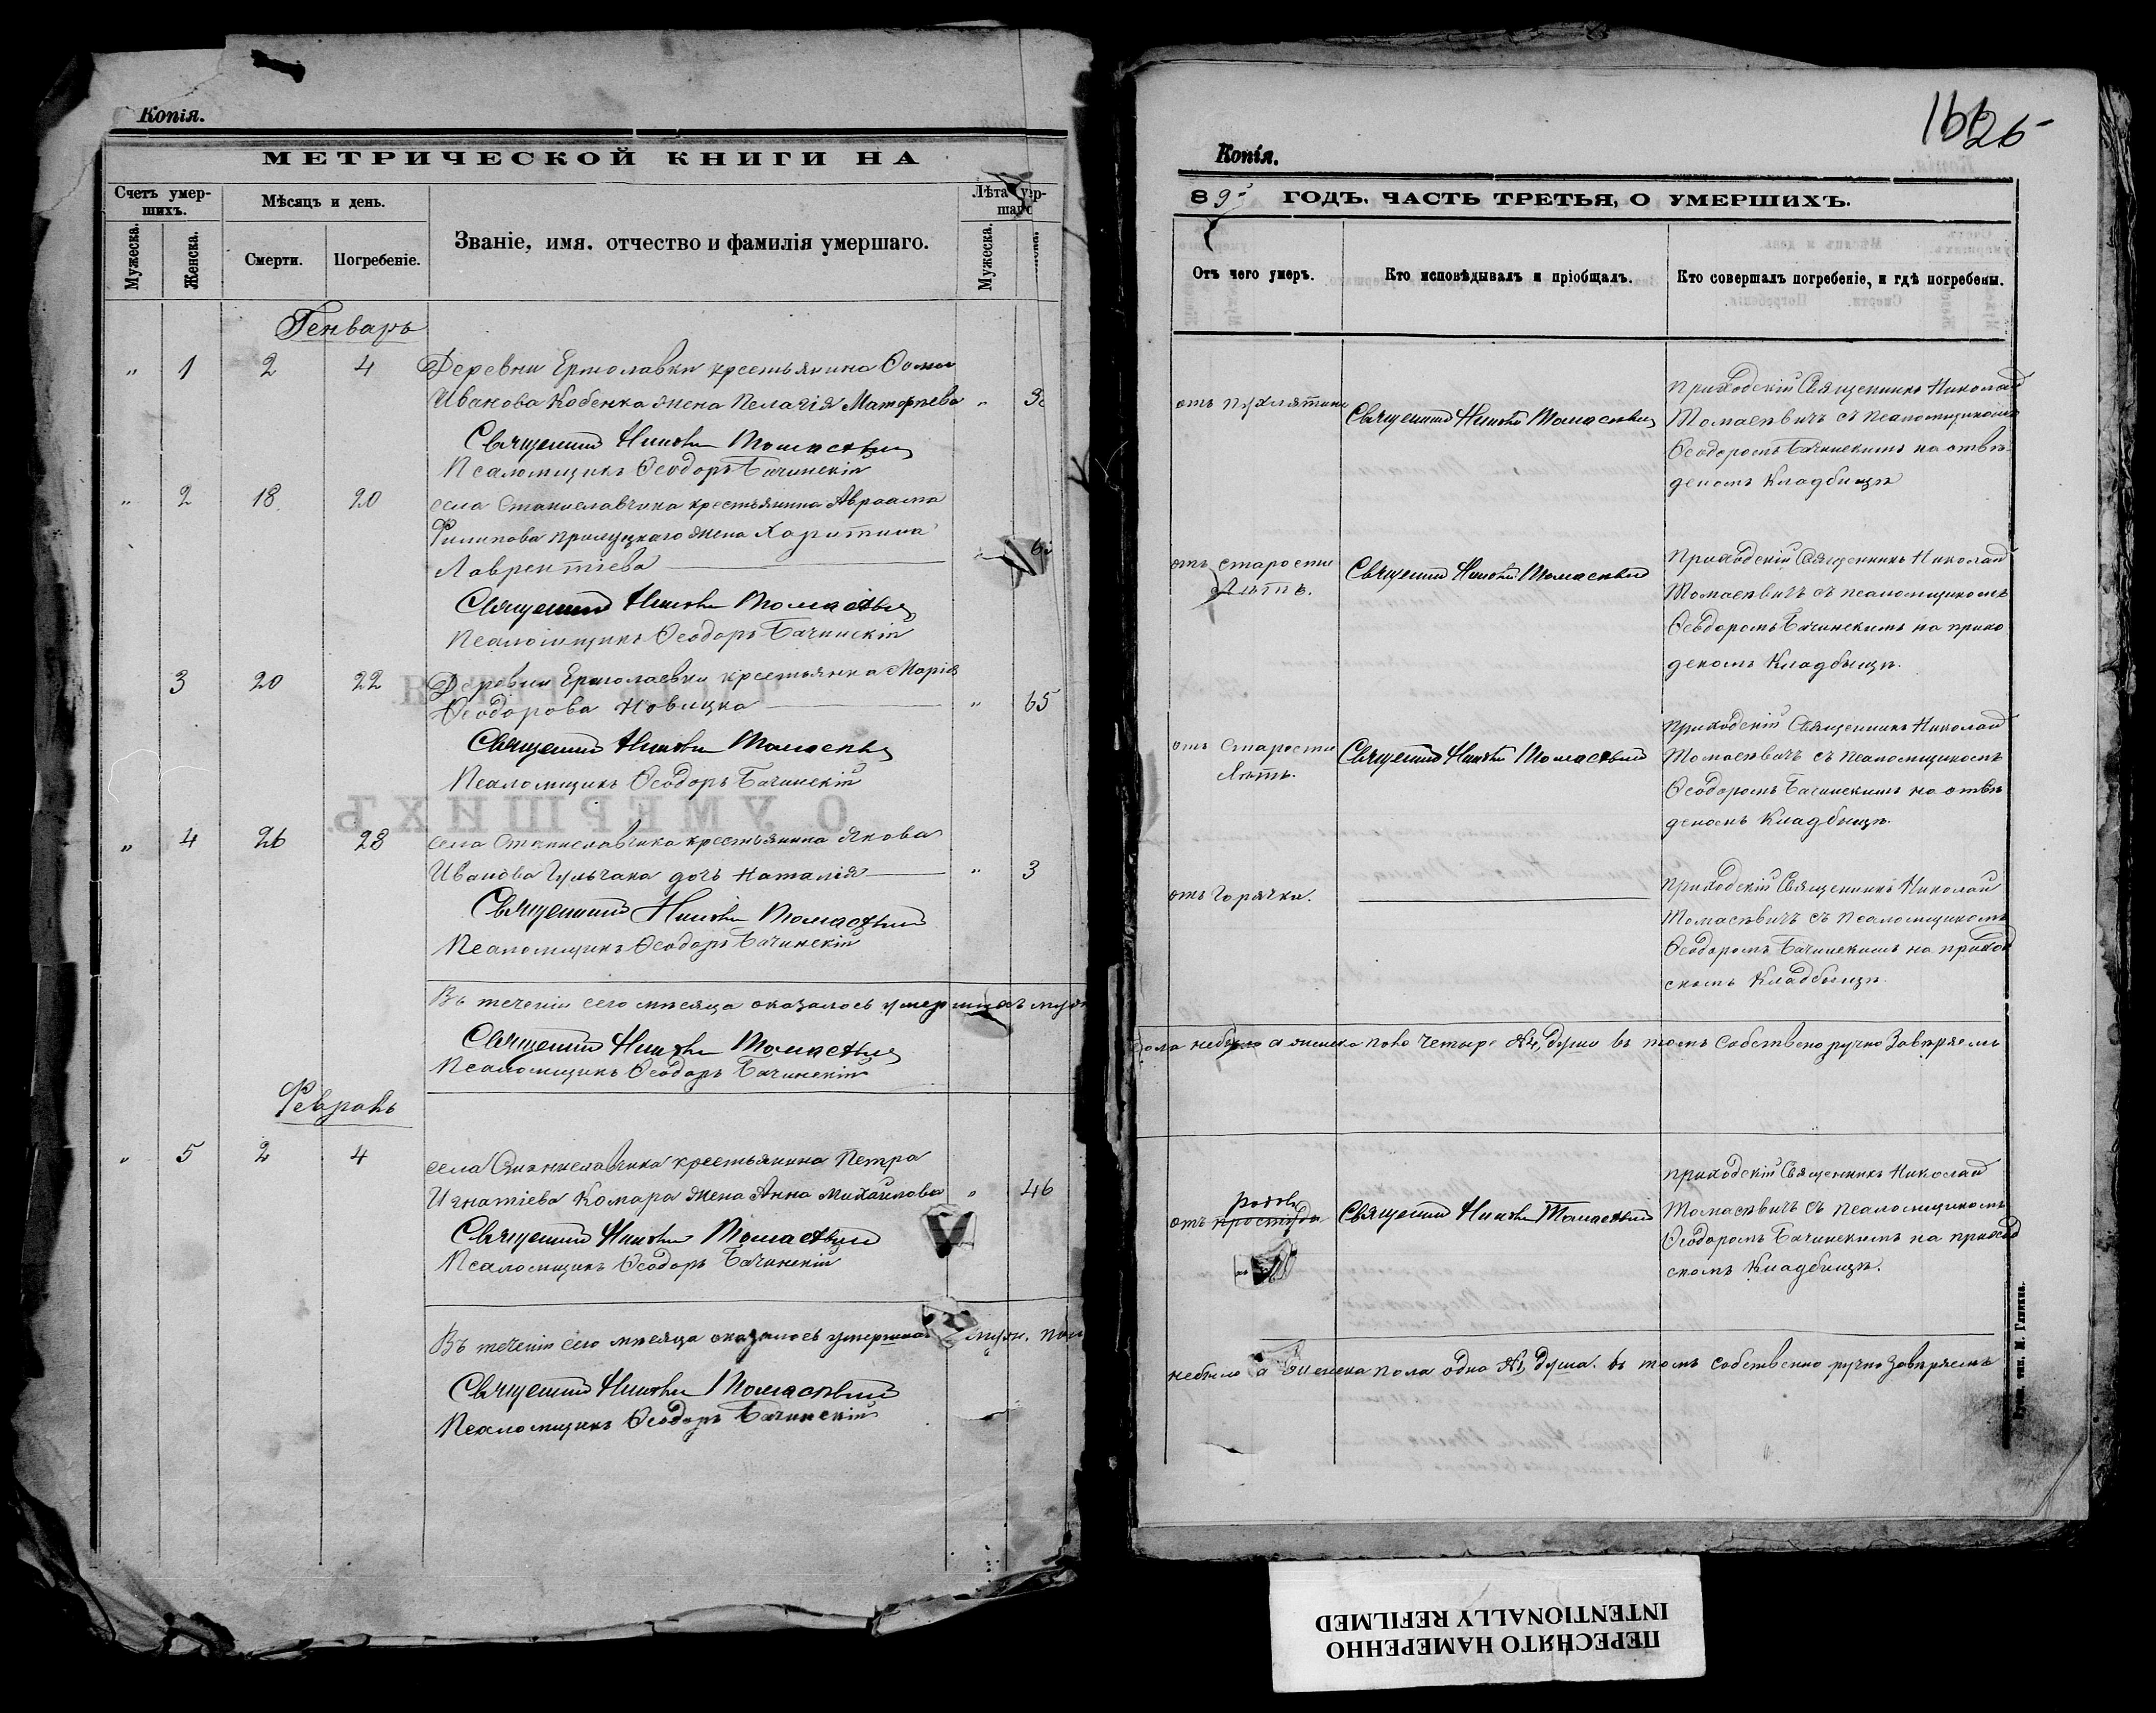 Копія.
МЕТРИЧЕСКОЙ КНИГИ НА
Счетъ умер-
шихъ.
Мѣсяцъ и день.
Званіе, имя, отчество и фамилія умершаго.
Лѣта умер-
шаго
Мужеска.
Женска.
Смерти.
Погребеніе.
Мужеска.
Генварь
" 1 2 4 Деревни Ермолавки крестьянина Фомы
Иванова Кобенка жена Пелагія Маторпева "
Священникъ Николай Томасевич
Псаломщикъ Ѳеодоръ Бачинскій
" 2 18 20 села Станиславчика крестьянина Авраама
Филипова Прилуцкаго жена Харитина
Лаврентіева
Священникъ Николай Томасевич
Псаломщикъ Ѳеодоръ Бачинскій
3 20 22 Деревни Ермолаевки крестьянка Марія
Ѳеодорова Новицка " 65
Священникъ Николай Томасевич
Псаломщикъ Ѳеодоръ Бачинскій
" 4 26 28 села Станиславчика крестьянина Якова
Иванова Гульчака дочь Наталія " 3
Священникъ Николай Томасевич
Псаломщикъ Ѳеодоръ Бачинскій
Въ теченіи сего мѣсяца оказалось умершихъ муж
Священникъ Николай Томасевич
Псаломщикъ Ѳеодоръ Бачинскій
Февраль
" 5 2 4 села Станиславчика крестьянина Петра
Игнатіева Комара жена Анна Михайлова " 46
Священникъ Николай Томасевич
Псаломщикъ Ѳеодоръ Бачинскій
Въ теченіи сего мѣсяца оказалось умершихъ муж. пол
Священникъ Николай Томасевич
Псаломщикъ Ѳеодоръ Бачинскій
Копія.
89 ГОДЪ. ЧАСТЬ ТРЕТЬЯ, О УМЕРШИХЪ.
Отъ чего умеръ.
Кто исповѣдывалъ и пріобщалъ.
Кто совершалъ погребеніе, и гдѣ погребены.
отъ
Священникъ Николай Томасевич
приходскій Священникъ Николай
Томасевичъ съ псаломщикомъ
Ѳеодоромъ Бачинскимъ на отве
деномъ Кладбищѣ
отъ старости
лѣтъ.
Священникъ Николай Томасевич
приходскій Священникъ Николай
Томасевичъ съ псаломщикомъ
Ѳеодоромъ Бачинскимъ на прихо
деномъ Кладбищѣ.
отъ старости
лѣтъ.
Священникъ Николай Томасевич
приходскій Священникъ Николай
Томасевичъ съ псаломщикомъ
Ѳеодоромъ Бачинскимъ на отве
деномъ Кладбищѣ.
отъ горячки.
приходскій Священникъ Николай
Томасевичъ съ псаломщикомъ
Ѳеодоромъ Бачинскимъ на приход
скомъ Кладбищѣ.
пола небыло а женска пола четыре №4, души въ томъ собственоручно завѣряемъ
родов
отъ простуды
Священникъ Николай Томасевич
приходскій Священникъ Николай
Томасевичъ съ псаломщикомъ
Ѳеодоромъ Бачинскимъ на приход
скомъ Кладбищѣ.
небыло а женска пола одна №1, душа. въ томъ собственно ручно завѣряемъ
тип. М. Глинка.
ПЕРЕСНЯТО НАМЕРЕННО
INTENTIONALLY REFILMED